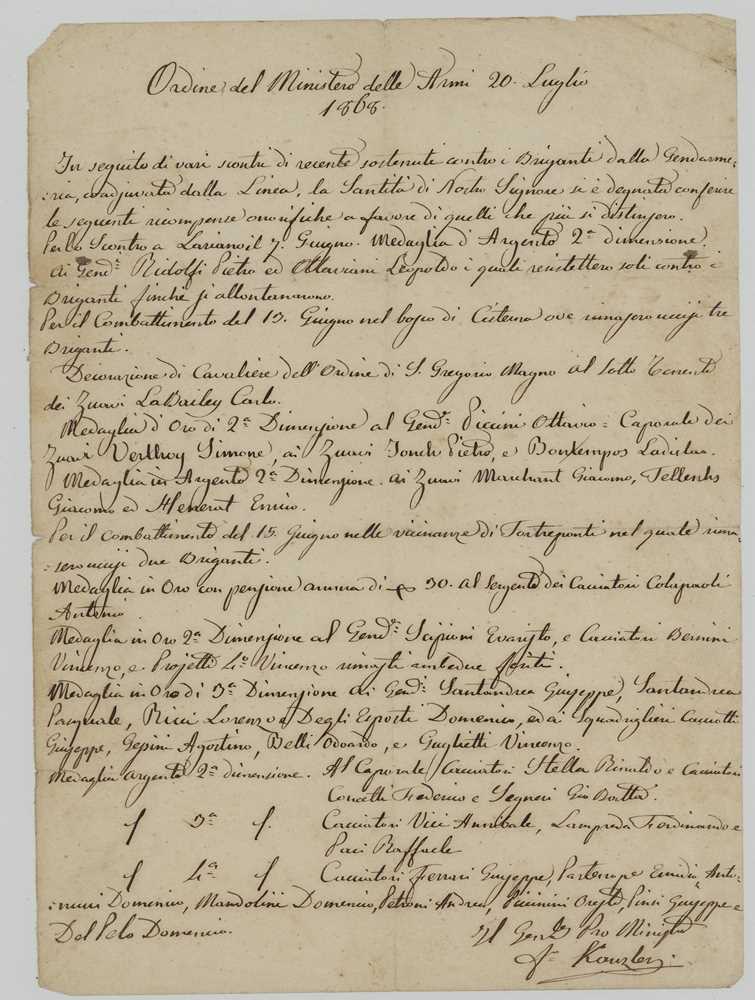 Ordine del Ministero delle Armi 20. Luglio
1868.
In seguito di vari scontri di recente sostenuti contro i Briganti dalla Gendarme-
:ria, coadjuvata dalla Linea, la Santità di Nostro Signore si è degnata conferire
le seguenti ricompense onorifiche a favore di quelli che più si distinsero.
Per lo Scontro a Lariano il 7. Giugno. Medaglia d'Argento 2ª dimensione.
ai Gend.i Ridolfi Pietro ed Ottaviani Leopoldo i quali resistettero soli contro i
Briganti finchè si allontanarono.
Per il Combattimento del 13. Giugno nel bosco di Cisterna ove rimasero uccisi tre
Briganti.
Decorazione di Cavaliere dell'Ordine di S. Gregorio Magno al Sotto Tenente
dei Zuavi LaBailey Carlo.
Medaglia d'Oro di 2ª Dimensione al Gend.e Piccini Ottavio = Caporale dei
Zuavi Verthoy Simone, ai Zuavi Jonch Pietro, e Bonkempos Ladislao.
Medaglia in Argento 2ª Dimensione. ai Zuavi Marchant Giacomo, Tellenhs
Giacomo ed Henerat Enrico.
Per il combattimento del 15. Giugno nelle vicinanze di Torreponti nel quale rima-
:sero uccisi due Briganti.
Medaglia in Oro con pensione annua di 30. al Sergente dei Cacciatori Colapaoli
Antonio.
Medaglia in Oro 2ª Dimensione al Gend.e Scipioni Evaristo, e Cacciatori Bernini
Vincenzo, e Projetti 4º Vincenzo rimasti ambedue feriti.
Medaglia in Oro di 3ª Dimensione ai Gend.i Santandrea Giuseppe, Santandrea
Pasquale, Ricci Lorenzo e Degli Esposti Domenico, ed ai Squadriglieri Cacciotti
Giuseppe, Gepini Agostino, Belli Odoardo, e Guglietti Vincenzo.
Medaglia argento 2ª dimensione. Al Caporale Cacciatori Stella Rinaldo e Cacciatori
Concetti Federico e Segneri Gio Batta.
f 3ª f. Cacciatori Vici Annibale, Lampreda Ferdinando e
Paci Raffaele
f 4ª f Cacciatori Ferrari Giuseppe, Partenope Emidio, Anto-
:nucci Domenico, Mandolini Domenico, Petroni Andrea, Piccinini Oreste, Pinsi Giuseppe e
Del Pelo Domenico.
Il Gen.le Pro Ministro
f.º Kanzler.